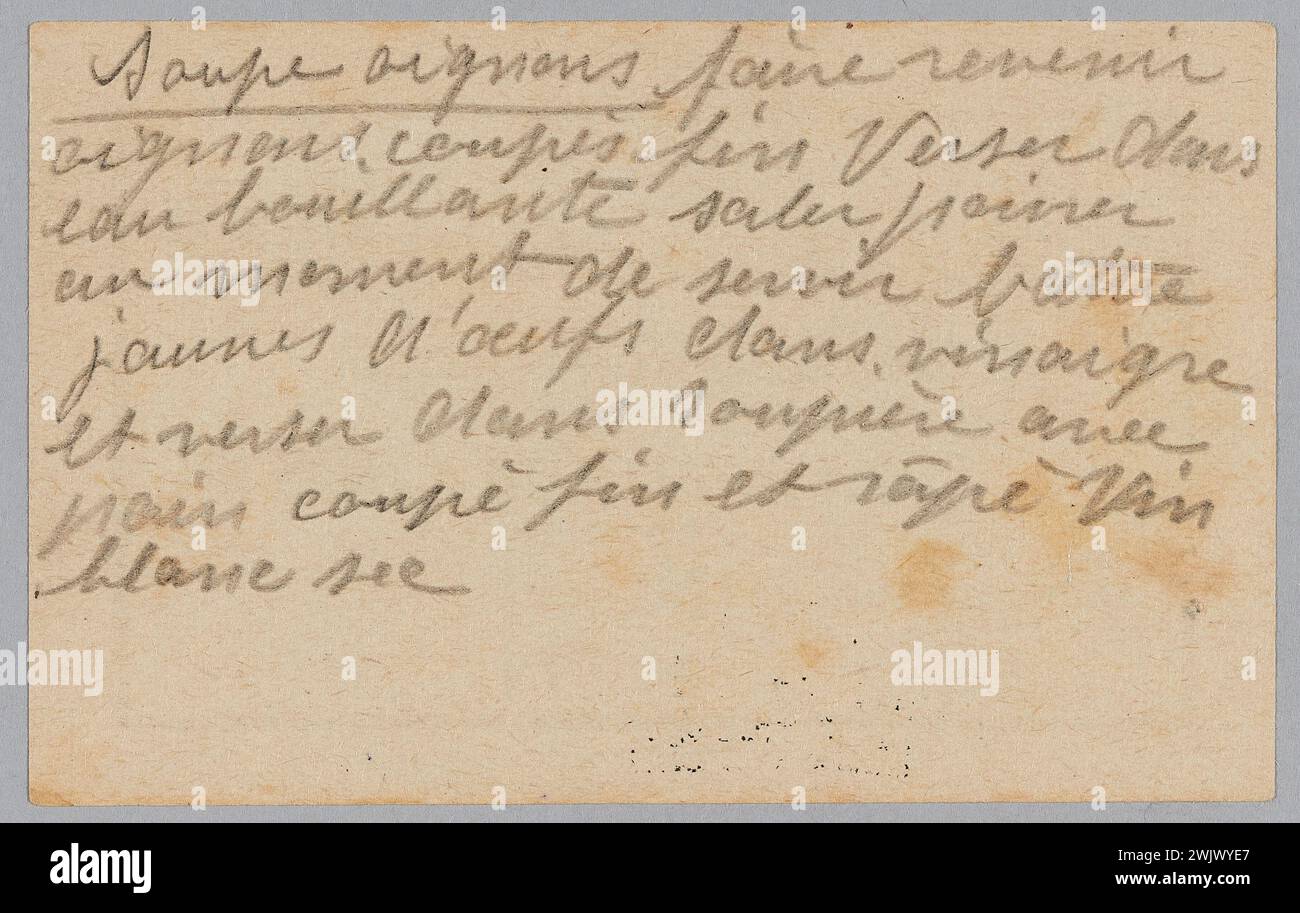 Soupe oignons faire revenir
oignons, coupés fin Verser dans
eau bouillante saler poivrer
au moment de servir battre
jaunes d'œufs dans vinaigre
et verser dans soupière avec
pain coupé fin et râpé Vin
blanc sec
alamy
Image ID: 2WJWYE7
www.alamy.com